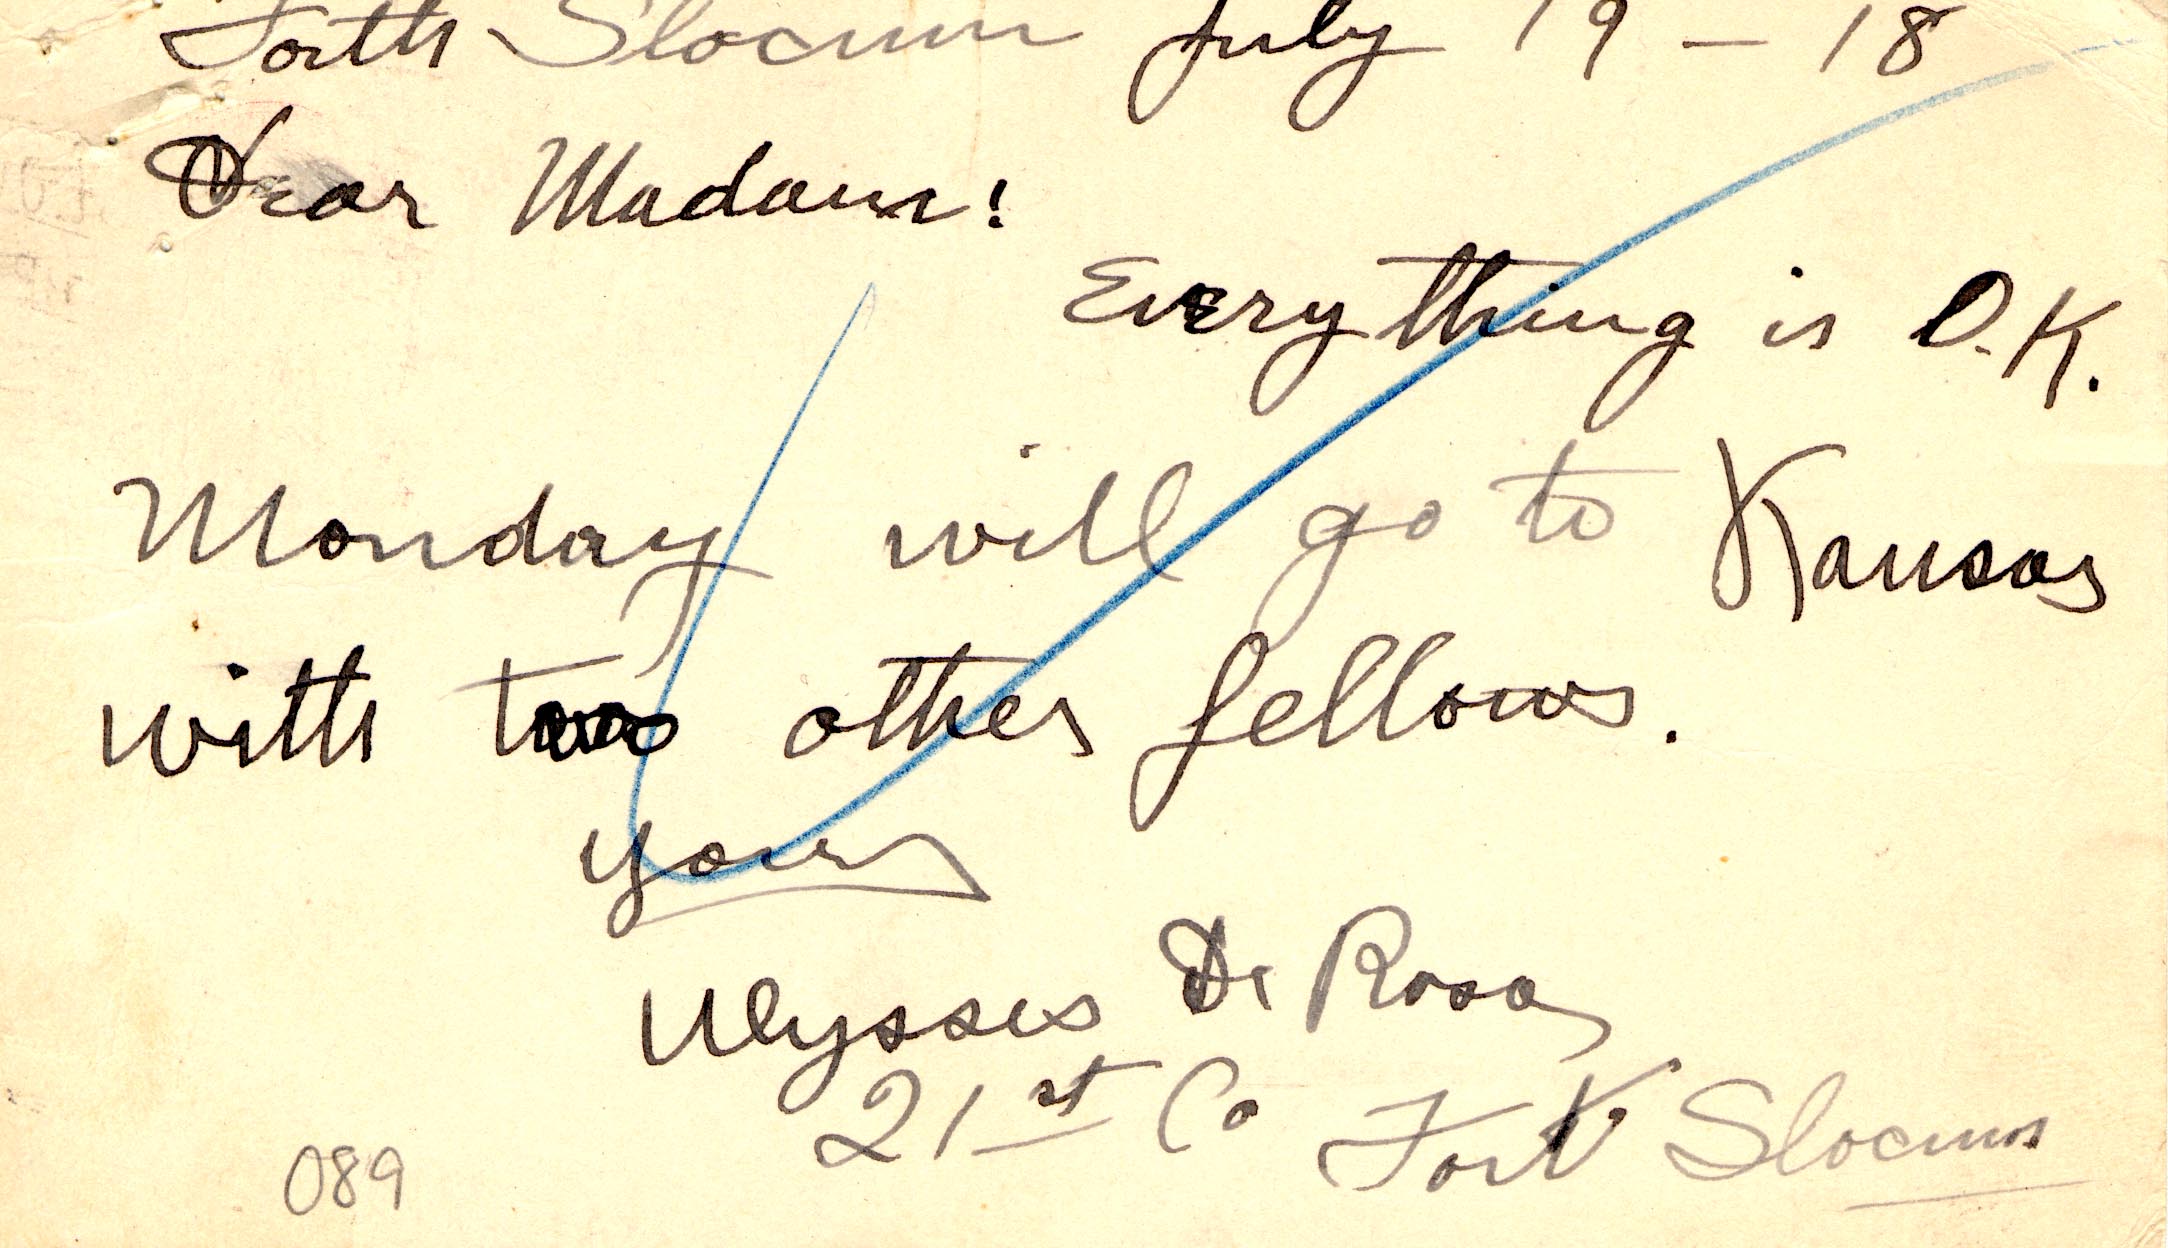 Forth Slocum July 19 – 18
Dear Madam!
Everything is O.K.
Monday will go to Kansas
with two other fellows.
Yours
Ulysses De Rosa
21st Co Fort Slocum
089